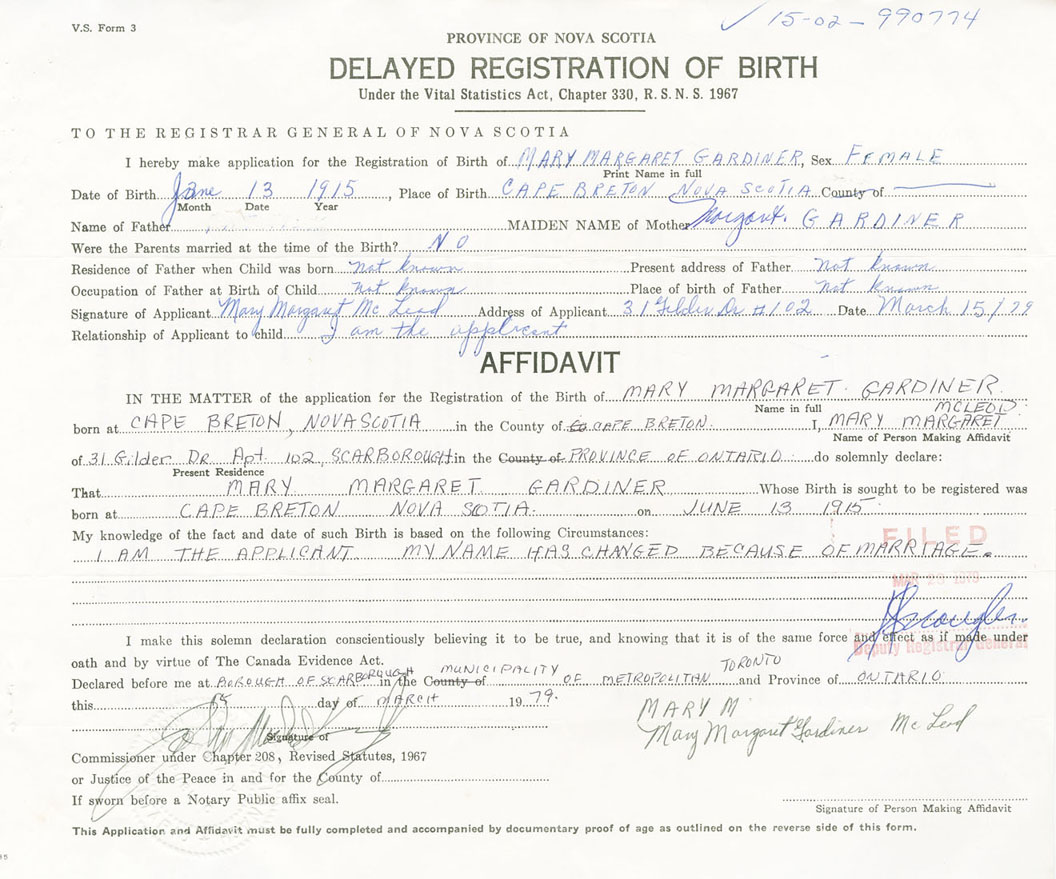 V.S. Form 3
✓ 15-02-990774
PROVINCE OF NOVA SCOTIA
DELAYED REGISTRATION OF BIRTH
Under the Vital Statistics Act, Chapter 330, R.S.N.S. 1967
TO THE REGISTRAR GENERAL OF NOVA SCOTIA
I hereby make application for the Registration of Birth of MARY MARGARET GARDINER, Sex FEMALE
Print Name in full
Date of Birth June 13 1915, Place of Birth CAPE BRETON NOVA SCOTIA County of
Month Date Year
Name of Father MAIDEN NAME of Mother Margaret GARDINER
Were the Parents married at the time of the Birth? NO
Residence of Father when Child was born not known Present address of Father not known
Occupation of Father at Birth of Child not known Place of birth of Father not known
Signature of Applicant Mary Margaret Mc Leod Address of Applicant 31 Gilder Dr #102 Date March 15/79
Relationship of Applicant to child I am the applicant
AFFIDAVIT
IN THE MATTER of the application for the Registration of the Birth of MARY MARGARET GARDINER
Name in full MCLEOD
born at CAPE BRETON, NOVA SCOTIA in the County of CAPE BRETON. I, MARY MARGARET
Name of Person Making Affidavit
of 31 Gilder Dr Apt. 102, SCARBOROUGH in the County of PROVINCE OF ONTARIO do solemnly declare:
Present Residence
That MARY MARGARET GARDINER Whose Birth is sought to be registered was
born at CAPE BRETON NOVA SCOTIA. on JUNE 13 1915
My knowledge of the fact and date of such Birth is based on the following Circumstances:
I AM THE APPLICANT MY NAME HAS CHANGED BECAUSE OF MARRIAGE.
FILED
MAR 1979
I make this solemn declaration conscientiously believing it to be true, and knowing that it is of the same force and effect as if made under
Deputy Registrar General
oath and by virtue of The Canada Evidence Act.
Declared before me at BOROUGH OF SCARBOROUGH in the County of MUNICIPALITY OF METROPOLITAN TORONTO and Province of ONTARIO
this 15 day of MARCH 1979.
MARY M
Mary Margaret Gardiner Mc Leod
Signature of
Commissioner under Chapter 208, Revised Statutes, 1967
or Justice of the Peace in and for the County of
If sworn before a Notary Public affix seal.
Signature of Person Making Affidavit
This Application and Affidavit must be fully completed and accompanied by documentary proof of age as outlined on the reverse side of this form.